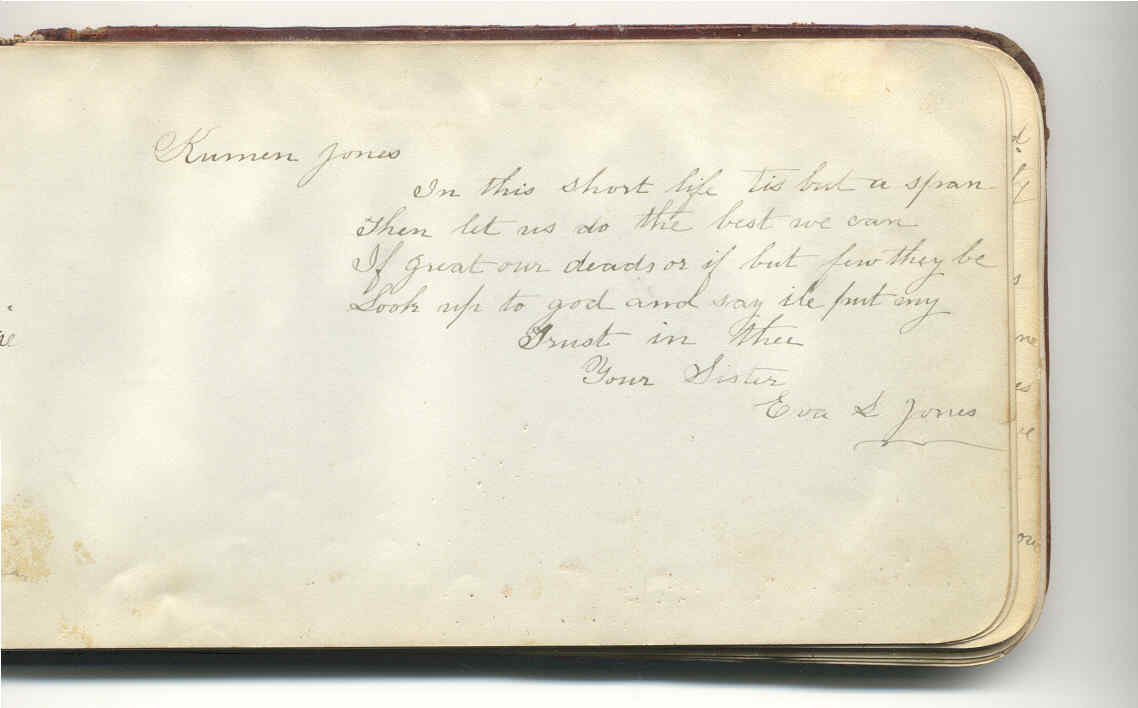 Kumen Jones
In this short life tis but a span
Then let us do the best we can
If great our deads or if but few they be
Look up to god and say ile put my
Trust in thee
Your Sister
Eva L Jones